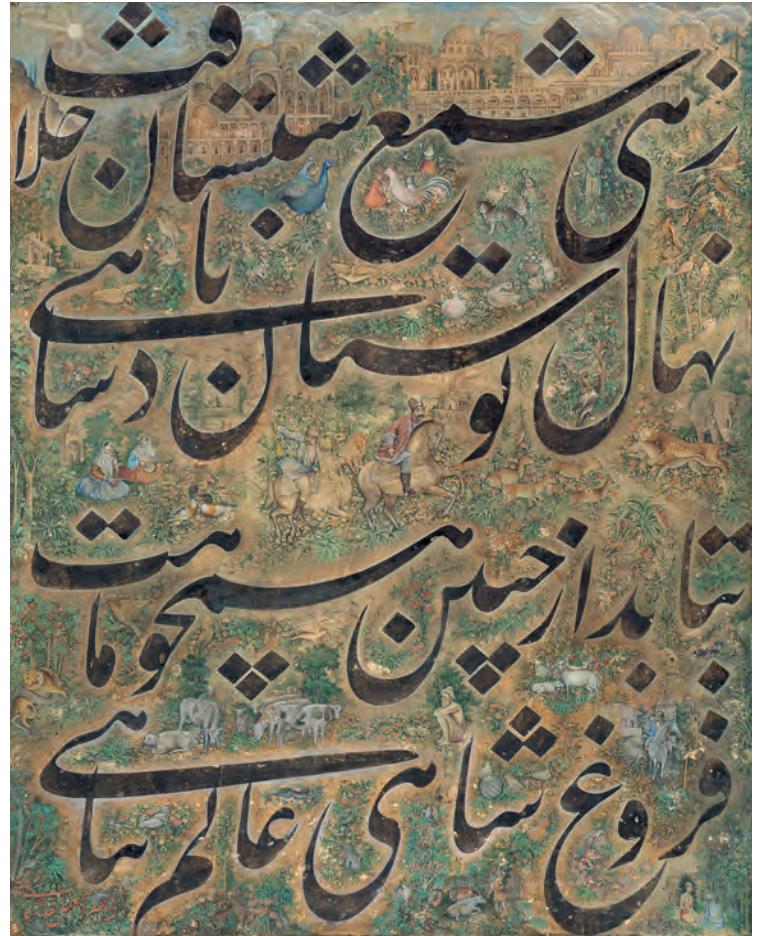 زهی شمع شبستان خلافت
نهال بوستان پادشاهی
بتابد از جبین همچو ماهت
فروغ شاهی عالم پناهی